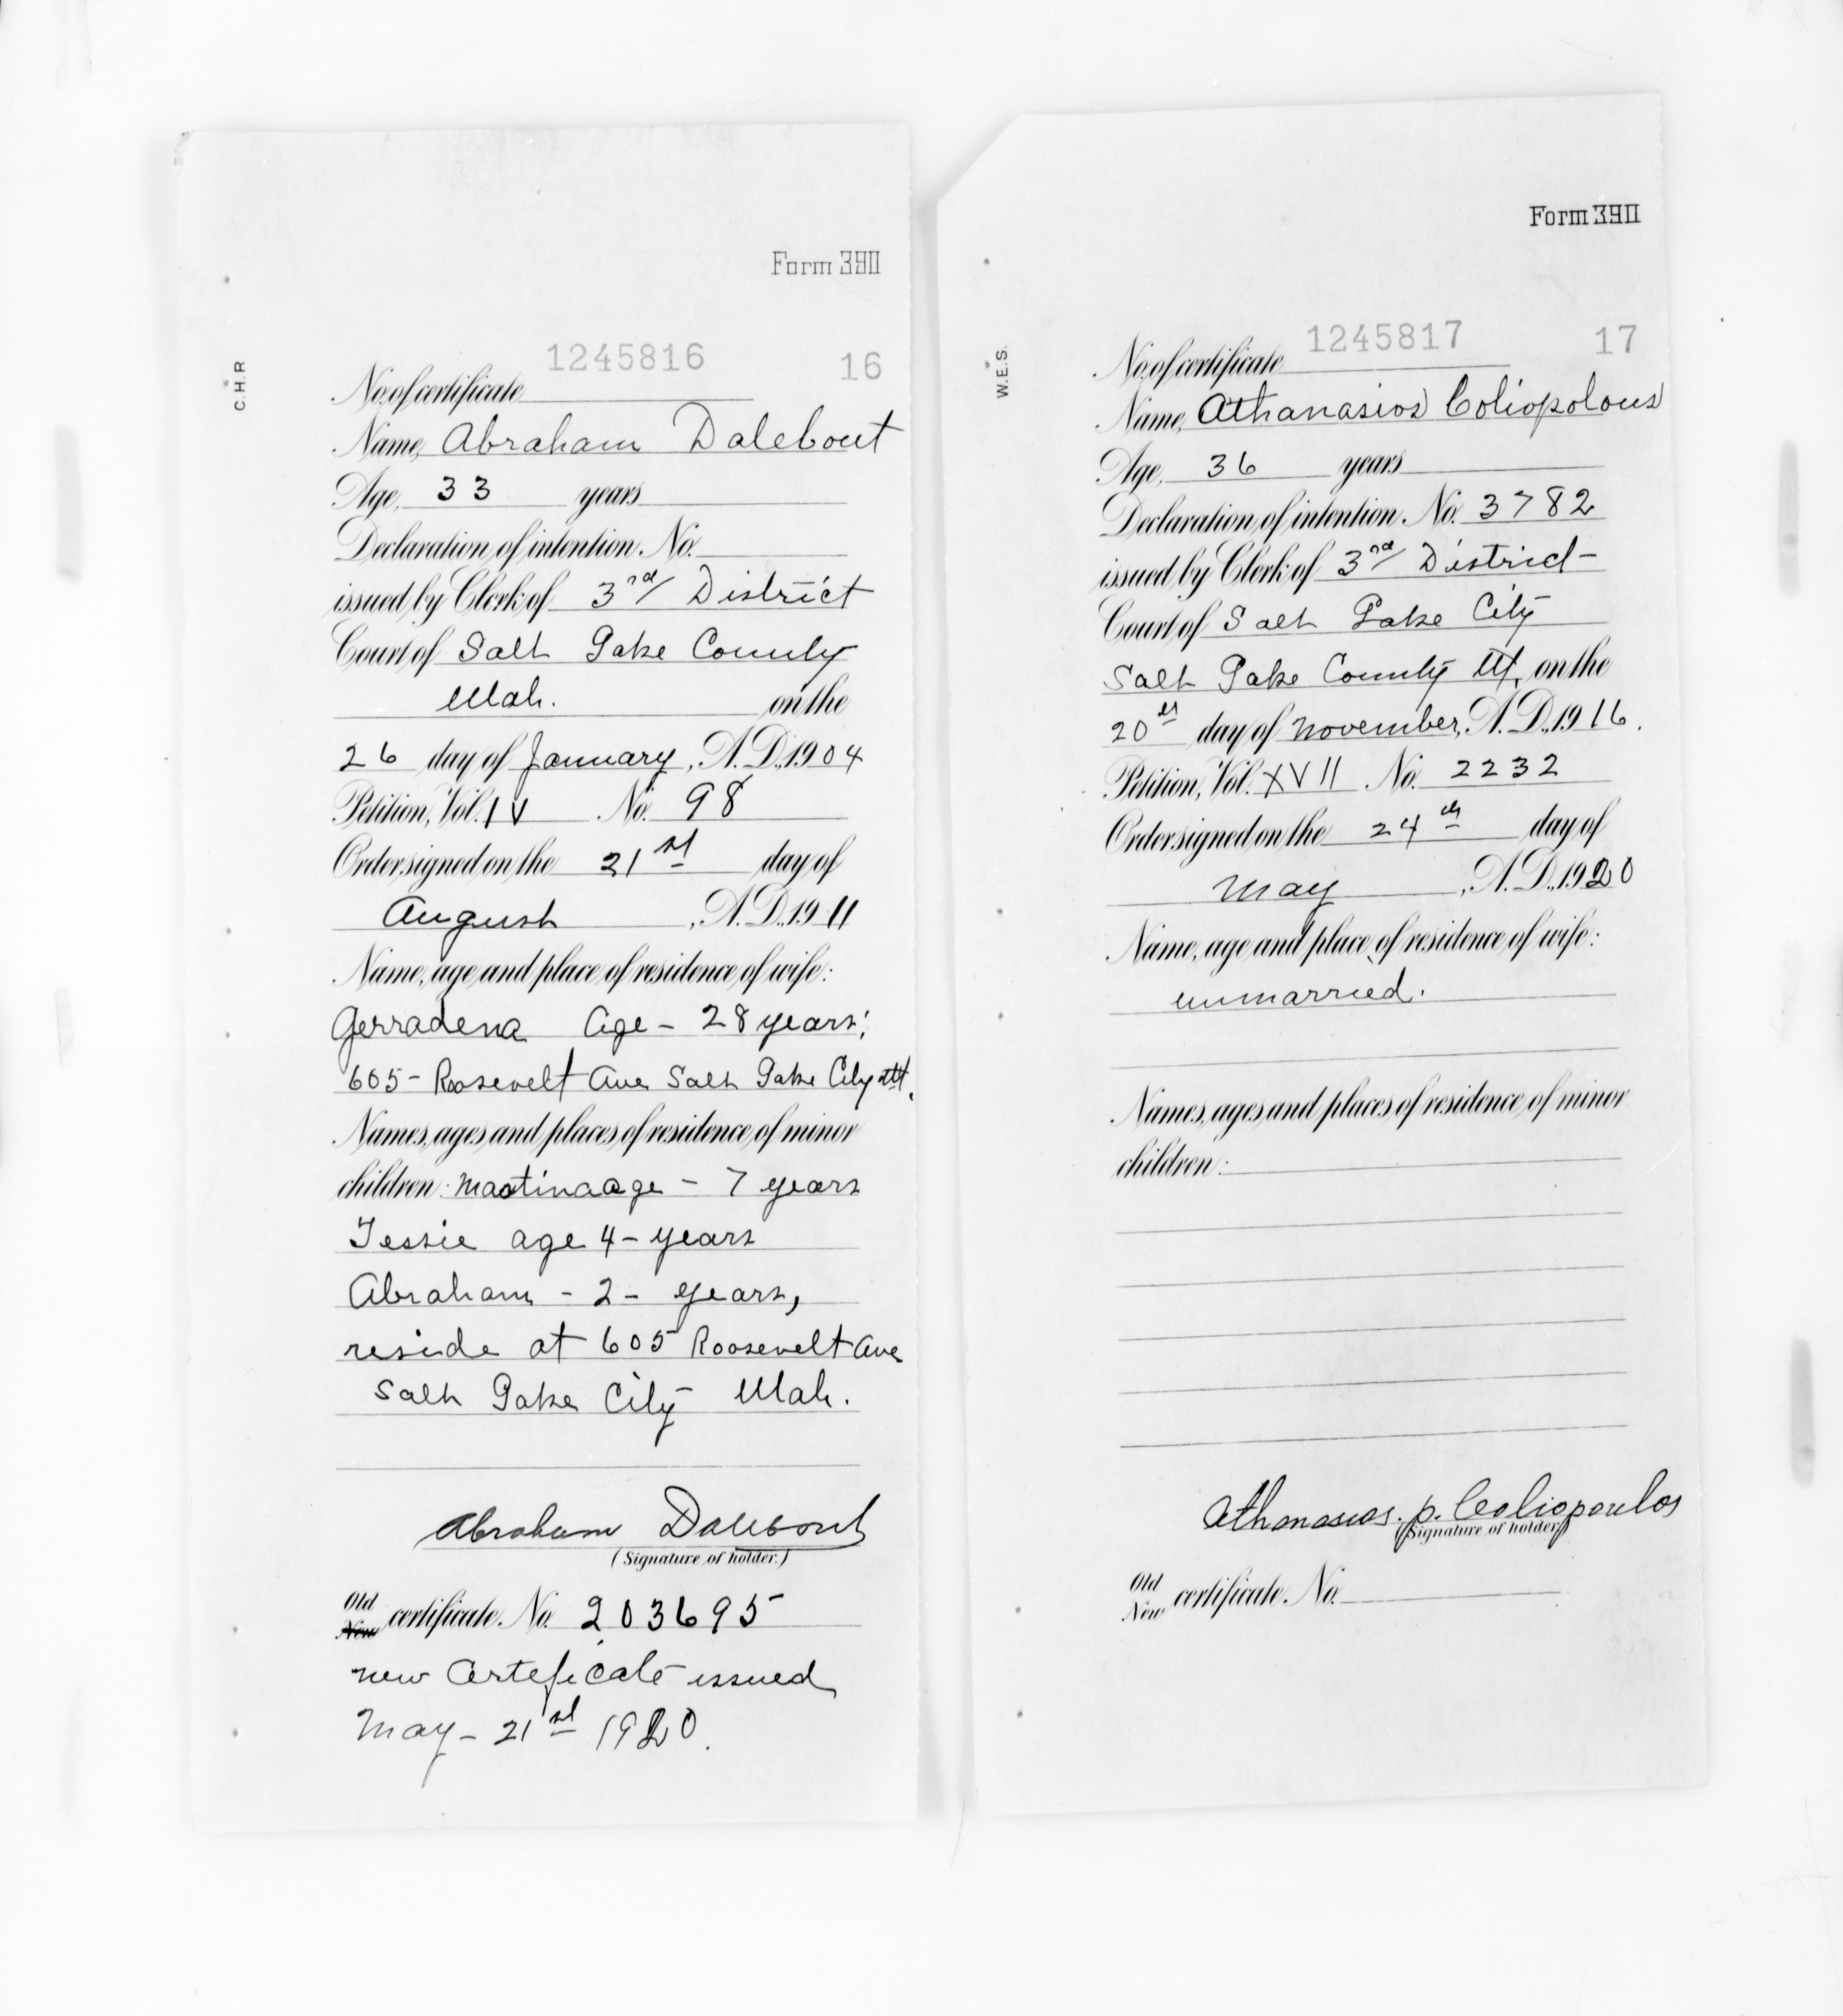 Form 390
C.H.R
1245816 16
No. of certificate
Name, Abraham Dalebout
Age, 33 years
Declaration of intention No.
issued by Clerk of 3rd District
Court of Salt Lake County
Utah. on the
26 day of January, A.D. 1904
Petition, Vol. IV No. 98
Order signed on the 21st day of
August, A.D. 1911
Name, age and place of residence of wife:
Gerradena Age - 28 years;
605 - Roosevelt Ave Salt Lake City Ut.
Names, ages and places of residence of minor
children: Mastina age - 7 years
Jessie age 4 - years
Abraham - 2 - years,
reside at 605 Roosevelt Ave
Salt Lake City Utah.
Abraham Dalebout
(Signature of holder.)
Old
New certificate No. 203695
new Certeficate issued
May - 21st 1920.
Form 390
W.E.S.
1245817 17
No. of certificate
Name, Athanasios Coliopolous
Age, 36 years
Declaration of intention No. 3782
issued by Clerk of 3rd District
Court of Salt Lake City
Salt Lake County Ut. on the
20th day of November, A.D. 1916.
Petition, Vol. XVII No. 2232
Order signed on the 24th day of
May, A.D. 1920
Name, age and place of residence of wife:
unmarried.
Names, ages and places of residence of minor
children:
Athanasios. p. Coliopoulos
(Signature of holder)
Old
New certificate No.